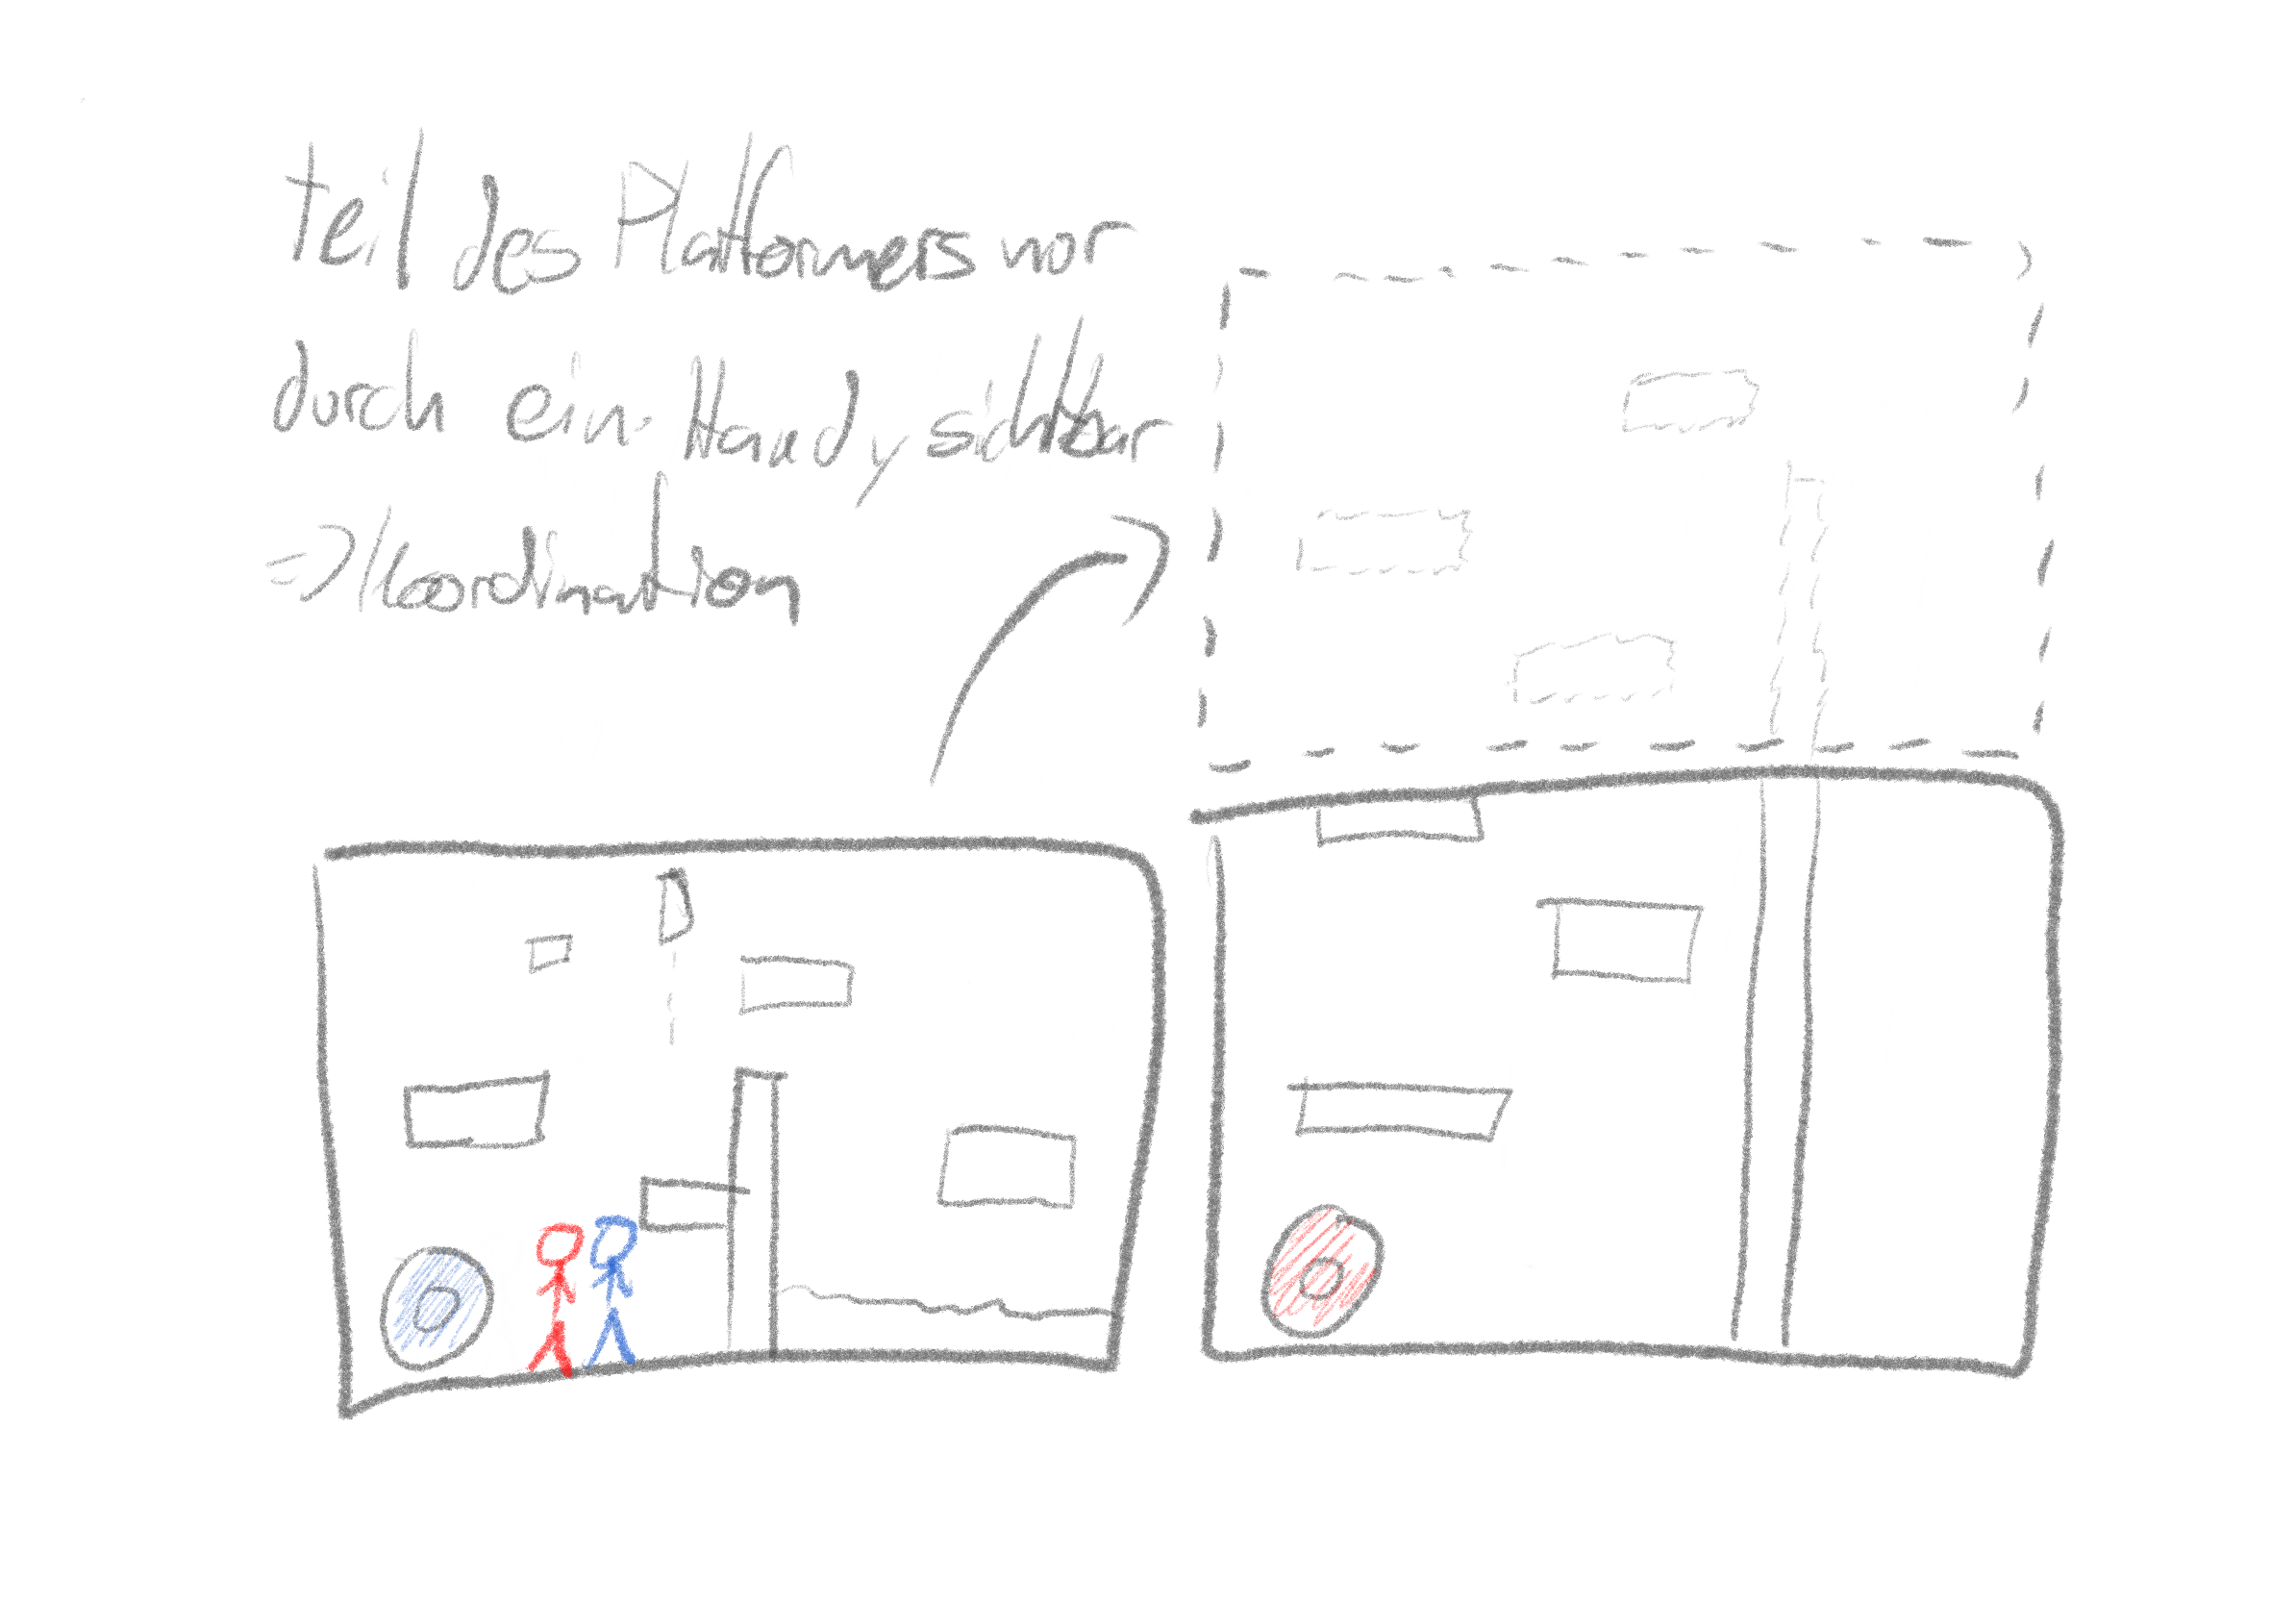 teil des Platformers nor
durch ein Handy sichtbar
=> Koordination